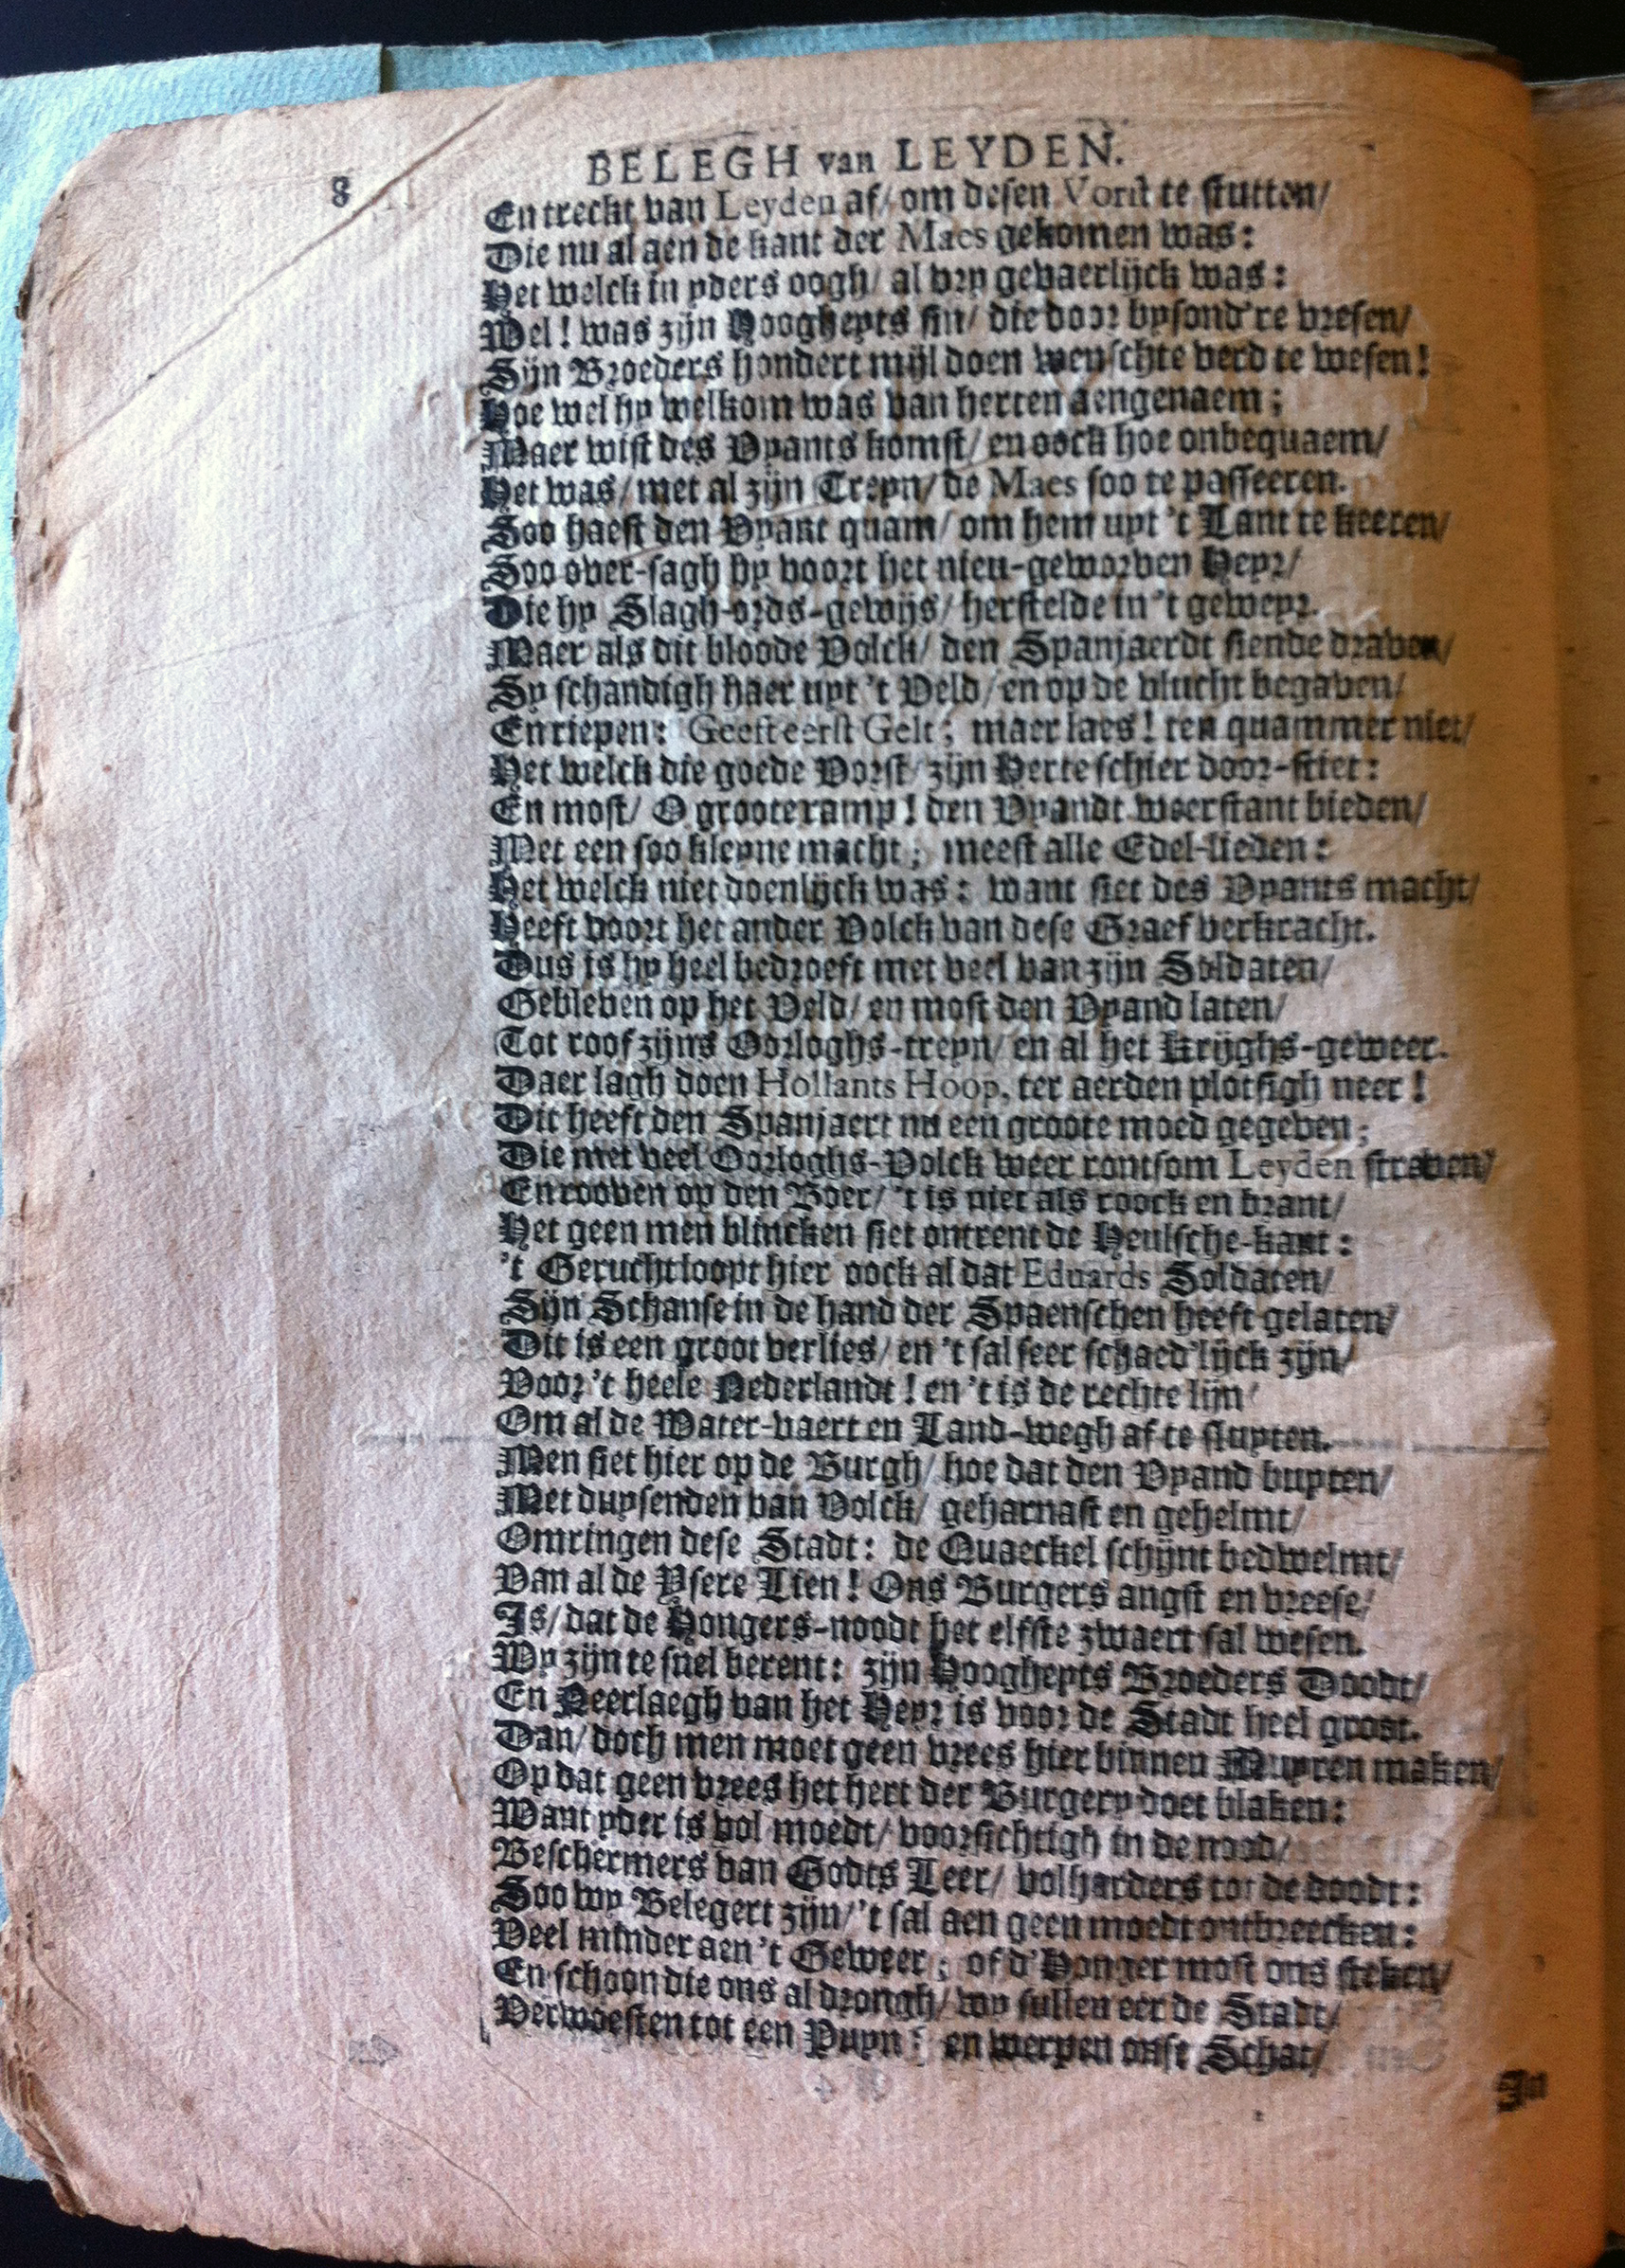 8
BELEGH van LEYDEN.
En treckt van Leyden af/ om desen Vorst te stutten/
Die nu al aen de kant der Maes gekomen was:
Het welck in yders oogh/ al vry gevaerlijck was:
Wel! was zijn Hoogheyts sin/ die door bysond're vresen/
Sijn Broeders hondert mijl doen wenschte verd te wesen!
Hoe wel hy welkom was van herten aengenaem;
Maer wist des Vyants komst/ en oock hoe onbequaem/
Het was/ met al zijn Treyn/ de Maes soo te passeeren.
Soo haest den Vyant quam/ om hem uyt 't Lant te keeren/
Soo over-sagh hy voort het nieu-geworven Heyr/
Die hy Slagh-ords-gewijs/ herstelde in 't geweyr.
Maer als dit bloode Volck/ den Spanjaerdt siende draven/
Sy schandigh haer uyt 't Veld/ en op de vlucht begaven/
En riepen: Geeft eerst Gelt; maer laes! ten quammer niet/
Het welck die goede Vorst/ zijn Herte schier door-stiet:
En most/ O groote ramp! den Vyandt weerstant bieden/
Met een soo kleyne macht; meest alle Edel-lieden:
Het welck niet doenlijck was: want siet des Vyants macht/
Heeft voort het ander Volck van dese Graef verkracht.
Dus is hy heel bedroeft met veel van zijn Soldaten/
Gebleven op het Veld/ en most den Vyand laten/
Tot roof zijns Oorloghs-treyn/ en al het Krijghs-geweer.
Daer lagh doen Hollants Hoop, ter aerden plotsigh neer!
Dit heeft den Spanjaert nu een groote moed gegeven;
Die met veel Oorloghs-Volck weer rontsom Leyden streven/
En rooven op den Boer/ 't is niet als roock en brant/
Het geen men blincken siet ontrent de Heulsche-kant:
't Gerucht loopt hier oock al dat Eduards Soldaten/
Sijn Schanse in de hand der Spaenschen heeft gelaten/
Dit is een groot verlies/ en 't sal seer schaed'lijck zijn/
Voor 't heele Nederlandt! en 't is de rechte lijn/
Om al de Water-vaert en Land-wegh af te sluyten.
Men siet hier op de Burgh/ hoe dat den Vyand buyten/
Met duysenden van Volck/ geharnast en gehelmt/
Omringen dese Stadt: de Quaeckel schijnt bedwelmt/
Van al de Ysere Lien! Ons Burgers angst en vreese/
Is/ dat de Hongers-noodt het elfste zwaert sal wesen.
Wy zijn te snel berent: zijn Hoogheyts Broeders Doodt/
En Neerlaegh van het Heyr is voor de Stadt heel groot.
Dan/ doch men moet geen vrees hier binnen Muyren maken/
Op dat geen vrees het hert der Burgery doet blaken:
Want yder is vol moedt/ voorsichtigh in de nood/
Beschermers van Godts Leer/ volharders tot de doodt:
Soo wy Belegert zijn/ 't sal aen geen moedt ontbreecken:
Veel minder aen 't Geweer; of d'Honger most ons steken/
En schoon die ons al drongh/ wy sullen eer de Stadt/
Verwoesten tot een Puyn: en werpen onse Schat/
In